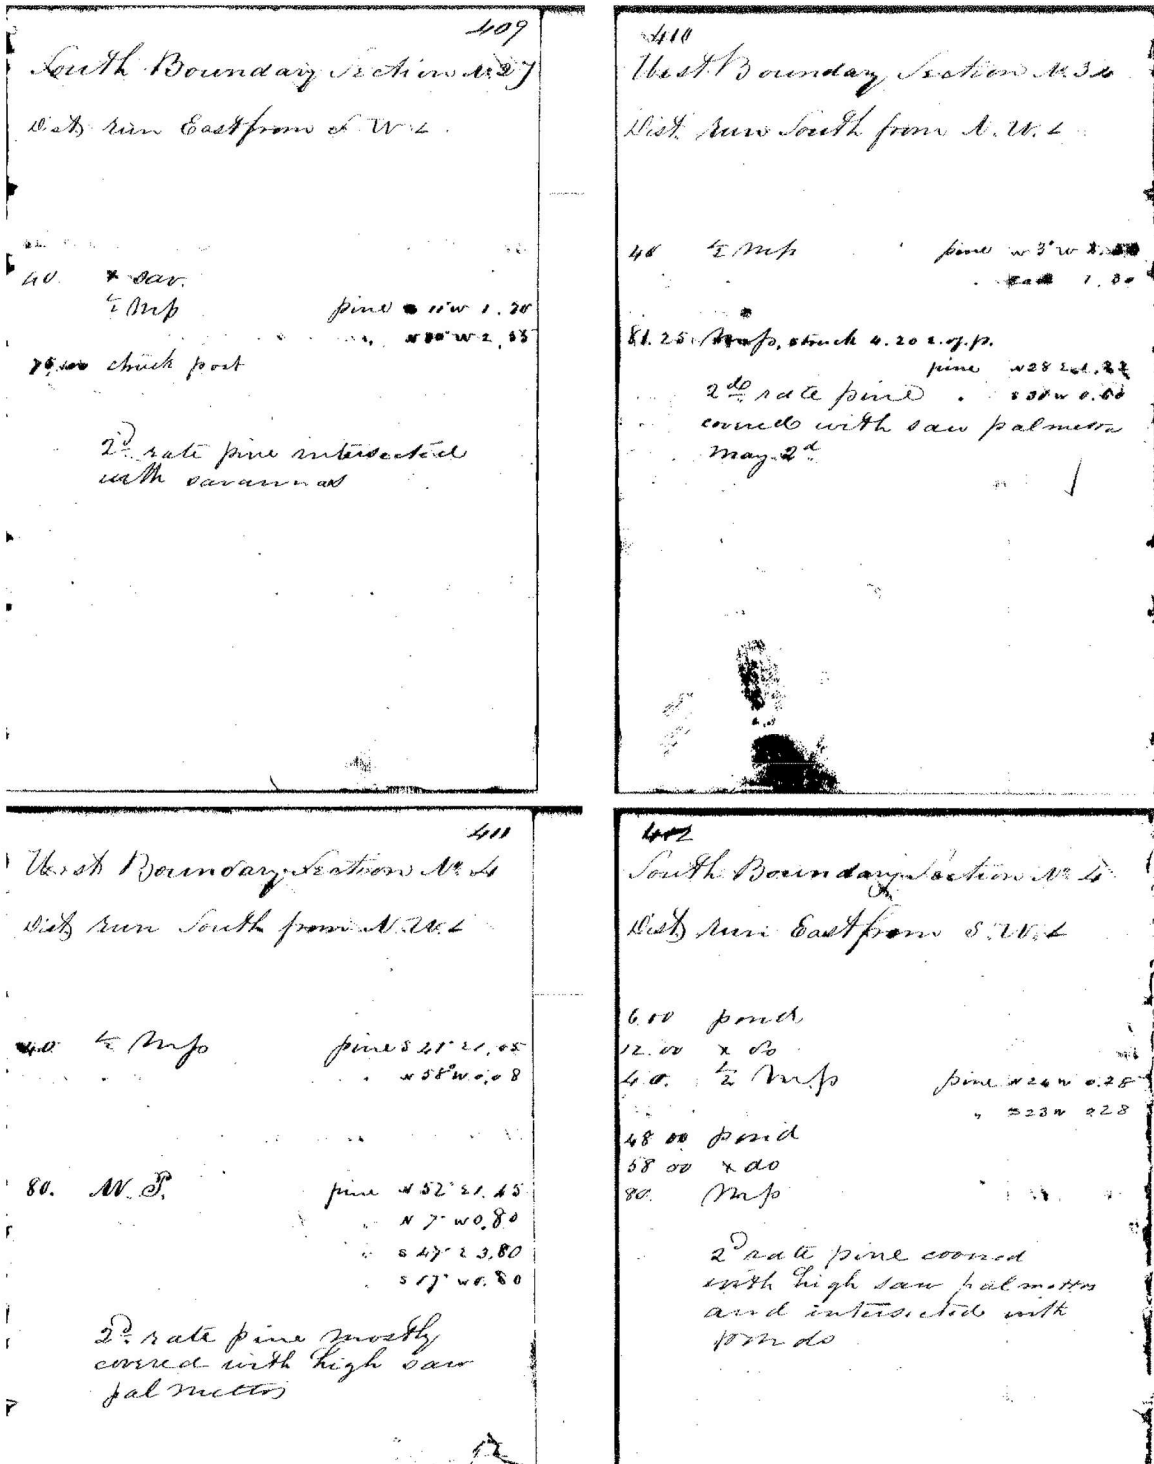 409
South Boundary Section No 27
Dist run East from S W C
40. x sav.
½ Mp pine 11° W 1.20
" W 2.
chuck post
2d rate pine intersected
with savannas
410
West Boundary Section No
Dist. run South from N. W. C
40 ½ Mp pine N 3° W
1.30
81.25 struck 4.20 E. of p.
pine N 28 E
2do rate pine
covered with saw palmetto
May 2d
411
West Boundary Section No 4
Dist run South from N. W. C
40 ½ Mp pine S 21° E 1.05
" N 58° W 0.08
80. M. P. pine N 52° E 1.45
" N 7° W 0.80
" S 47° E 3.80
" S 17° W 0.80
2d rate pine mostly
covered with high saw
palmettos
412
South Boundary Section No 4
Dist run East from S. W. C
6.00 pond
12.00 x do
40. ½ Mp pine N 24 W 0.28
" S 23 W 228
48 00 pond
58 00 x do
80. Mp
2d rate pine covered
with high saw palmettos
and intersected with
ponds